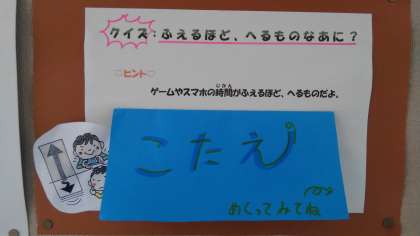 クイズ：ふえるほど、へるものなあに？
ヒント
ゲームやスマホの時間がふえるほど、へるものだよ。
じかん
こたえ
めくってみてね